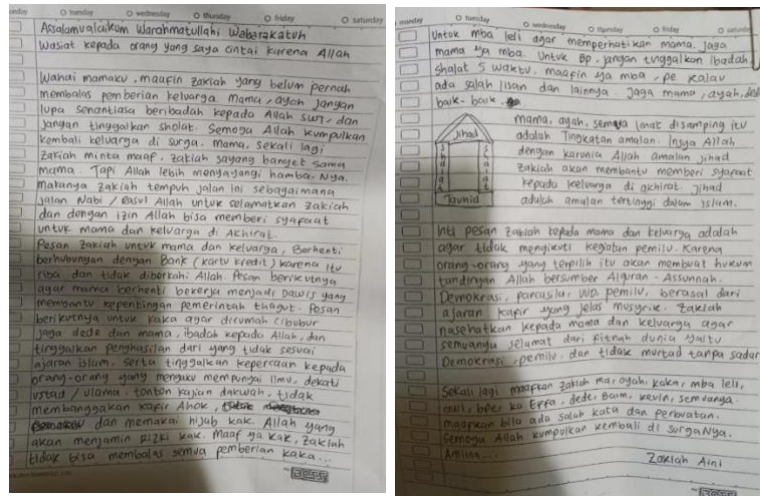 monday tuesday wednesday thursday friday saturday
Assalamualaikum Warahmatullahi Wabarakatuh
Wasiat kepada orang yang saya cintai karena Allah
Wahai mamaku, maafin zakiah yang belum pernah
membalas pemberian keluarga. Mama, ayah jangan
lupa senantiasa beribadah kepada Allah swt, dan
jangan tinggalkan sholat. Semoga Allah kumpulkan
kembali keluarga di surga. mama, sekali lagi
zakiah minta maaf. zakiah sayang banget sama
mama. Tapi Allah lebih menyayangi hamba-Nya.
makanya zakiah tempuh jalan ini sebagaimana
jalan Nabi / Rasul Allah untuk selamatkan zakiah
dan dengan izin Allah bisa memberi syafaat
untuk mama dan keluarga di Akhirat.
Pesan zakiah untuk mama dan keluarga, Berhenti
berhubungan dengan Bank (kartu kredit) karena itu
riba dan tidak diberkahi Allah. Pesan berikutnya
agar mama berhenti bekerja menjadi Dawis yang
membantu kepentingan pemerintah thagut. Pesan
berikutnya untuk kaka agar dirumah Cibubur
jaga dede dan mama, ibadah kepada Allah, dan
tinggalkan penghasilan dari yang tidak sesuai
ajaran islam. Serta tinggalkan kepercaan kepada
orang-orang yang mengaku mempunyai ilmu, dekati
ustad / ulama. tonton kajian dakwah, tidak
membanggakan kafir Ahok,
dan memakai hijab kak. Allah yang
akan menjamin rizki kak. maaf ya kak, zakiah
tidak bisa membalas semua pemberian kaka...
monday tuesday wednesday thursday friday saturday
Untuk mba leli agar memperhatikan mama. Jaga
mama ya mba. Untuk BP. jangan tinggalkan ibadah.
Shalat 5 waktu. maafin ya mba, pe kalau
ada salah lisan dan lainnya. Jaga mama, ayah, dede
baik-baik.
mama, ayah, semua lihat disamping itu
Jihad
adalah Tingkatan amalan. Insya Allah
dengan karunia Allah amalan jihad
zakiah akan membantu memberi syafaat
kepada keluarga di akhirat. Jihad
Tauhid
adalah amalan tertinggi dalam islam.
Inti pesan zakiah kepada mama dan keluarga adalah
agar tidak mengikuti kegiatan pemilu. Karena
orang-orang yang terpilih itu akan membuat hukum
tandingan Allah bersumber Alquran - Assunnah.
Demokrasi, pancasila, UUD, pemilu, berasal dari
ajaran kafir yang jelas musyrik. zakiah
nasehatkan kepada mama dan keluarga agar
semuanya selamat dari fitnah dunia yaitu
Demokrasi, pemilu, dan tidak murtad tanpa sadar
Sekali lagi maafkan zakiah ma, ayah, kaka, mba leli,
dede, kevin, semuanya.
maafkan bila ada salah kata dan perbuatan.
Semoga Allah kumpulkan kembali di surgaNya.
Amiin....
Zakiah Aini